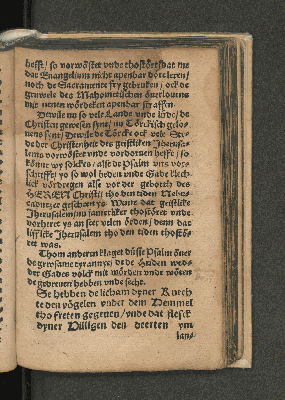 hefft / so vorwöstet vnde thostöret dat me
dat Euangelium nicht apenbar dörc leren /
noch de Sacramente fry gebruken / ock de
gruwele des Mahometischen ouerlouens
mit nenen wördeken apenbar straffen.
Dewile nu so vele Lande vnde lüde / de
Christen gewesen synt / nu Törckisch gelo-
uens synt / Dewile de Törcke ock vele Ste-
de der Christenheit des geistliken Jherusa-
lems vorwöstet vnde vordoruen hefft / so
könne wy solckes / alse de Psalm vns vor-
schrifft / yo so wol beden vnde Gade klech-
lick vördregen alse vor der gebordt des
HEREN Christi tho den tiden Nebucadnezer
geschen ys Wente dat geistlike
Jherusalem ins jamerliker thostöret vnde
vorheret ys an seer velen örden / denn dat
lifflike Jherusalem tho den tiden thostö-
ret was.
Thom andern klaget düsse Psalm öuer
de gruwsame tyrannye de de Heiden wed-
der Gades volck mit mörden vnde wöten
gedreuen hebben vnde secht.
Se hebben de licham dyner Knech
te den vögelen vnder dem Hemmel
tho freten gegeuen / vnde dat fleisck
dyner Hilligen den deerten ym
lan-